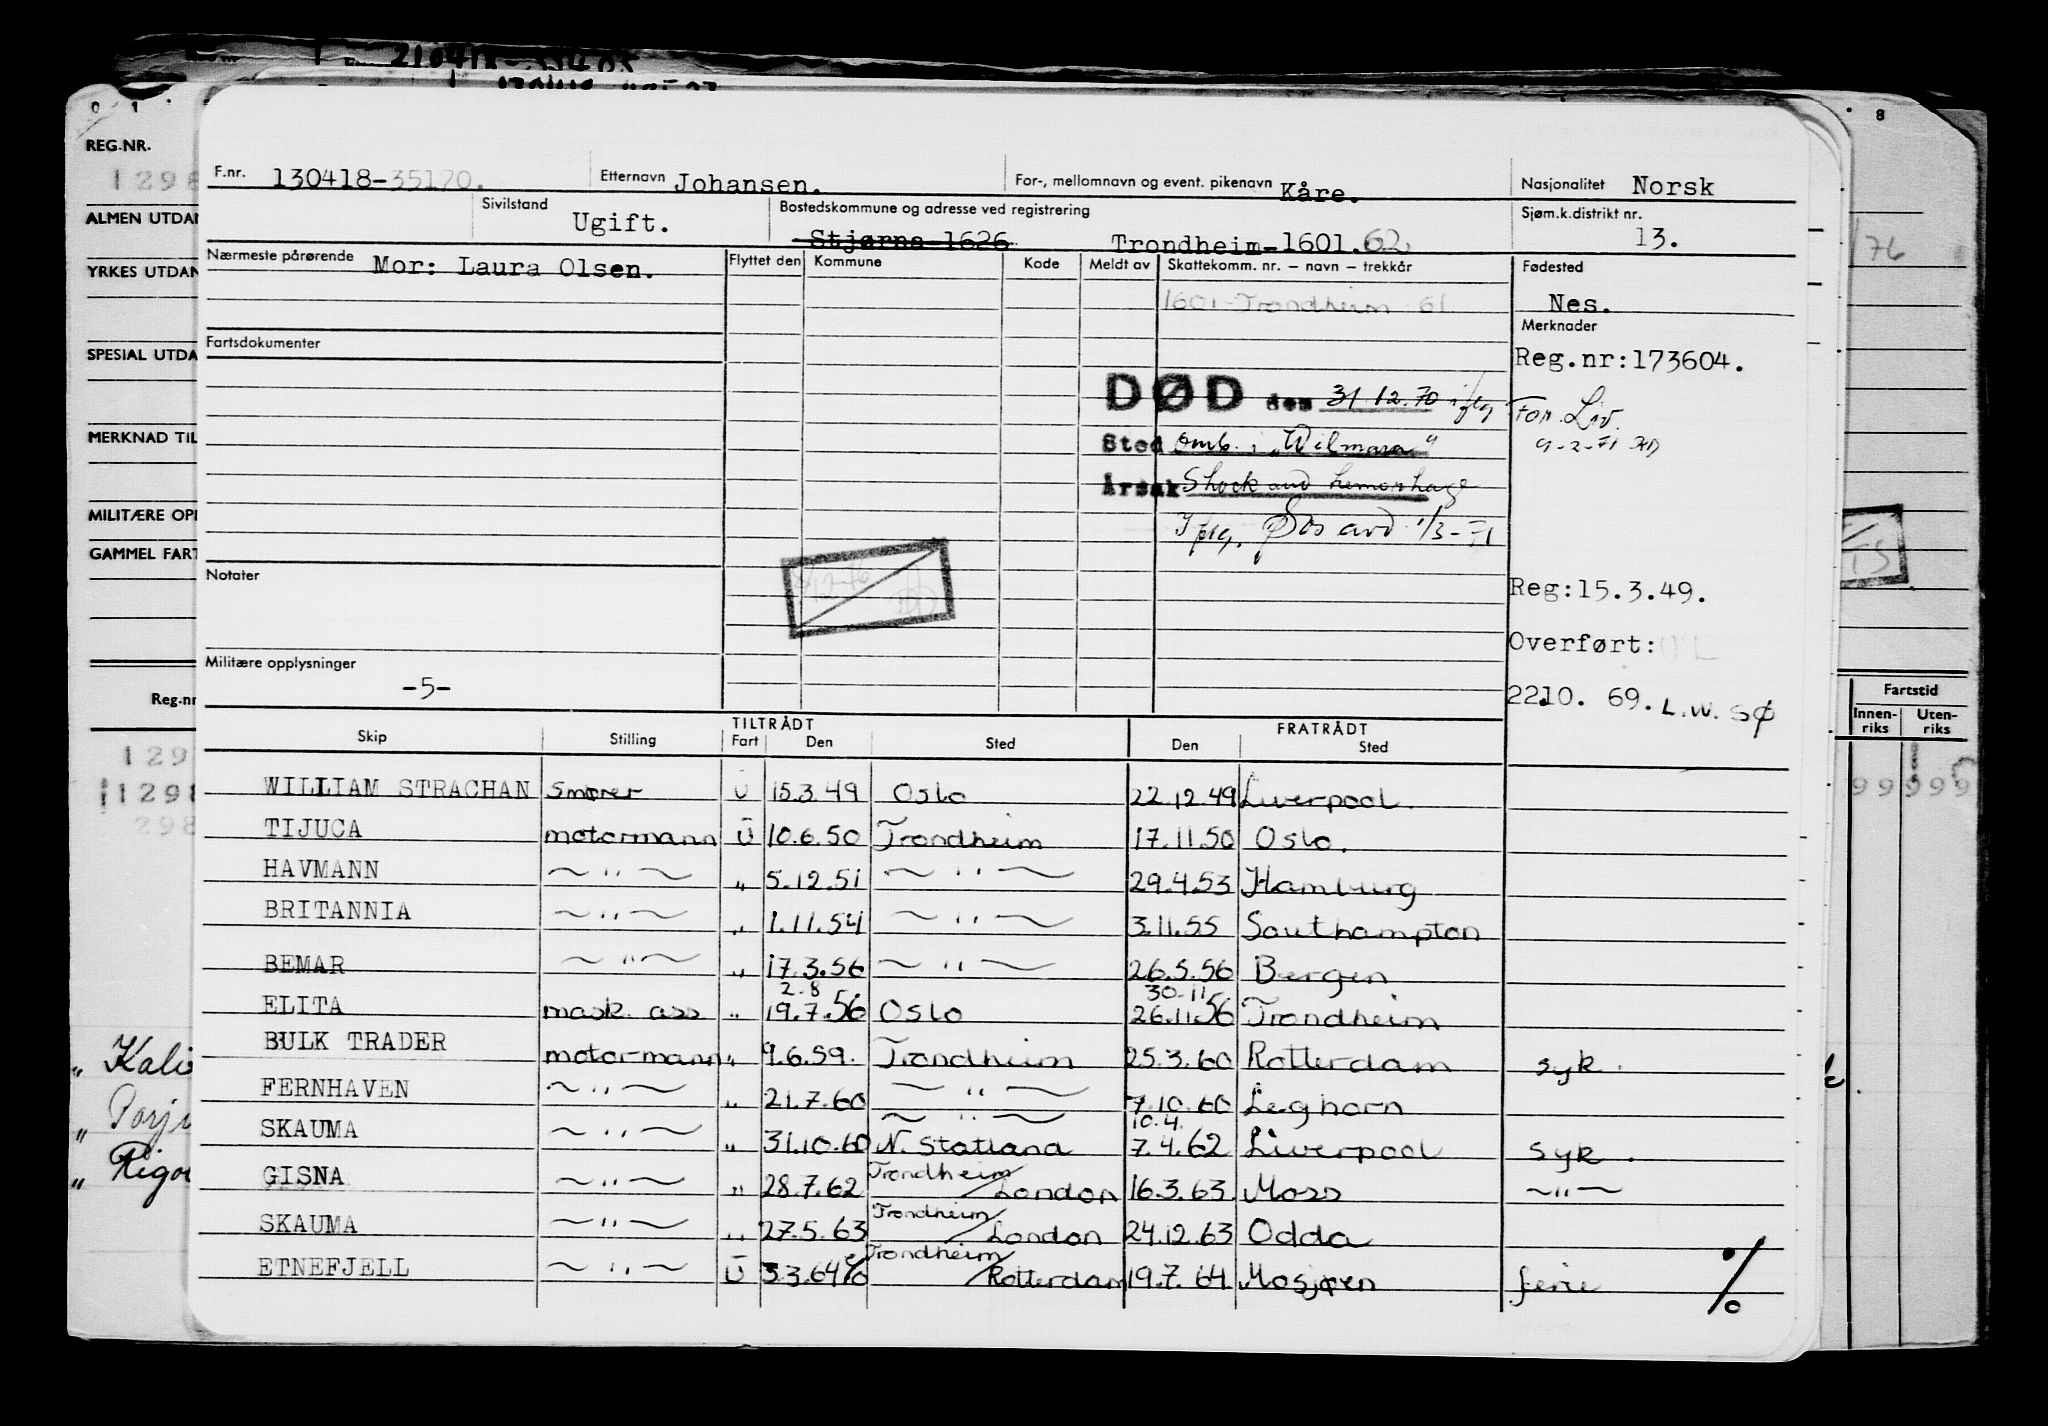 210418-33405
O 1 8
REG.NR.
1298
ALMEN UTDAN
YRKES UTDAN
SPESIAL UTDA
MERKNAD TIL
MILITÆRE OPP
GAMMEL FART
Reg-nr
129
11298
298
" Kali
" Torji
" Rigo
/76
Fartstid
Innen-riks Uten-riks
99 999
F.nr. 130418-35120. Etternavn Johansen. For-, mellomnavn og event. pikenavn Kåre. Nasjonalitet Norsk
Sivilstand Ugift. Bostedskommune og adresse ved registrering Stjørna-1626 Trondheim-1601.62 Sjøm.k.distrikt nr. 13.
Nærmeste pårørende Mor: Laura Olsen. Flyttet den Kommune Kode Meldt av Skattekomm. nr. – navn – trekkår Fødested
1601-Trondheim-61 Nes.
Merknader
Fartsdokumenter Reg.nr:173604.
DØD den 31 12.70 iflg For. Liv.
9-2-71
Sted omb. i „Wilmara"
Årsak Shock and hemorrhage
Iflg. Øos avd 1/3-71
Notater
Reg:15.3.49.
Overført:
Militære opplysninger
-5-
2210. 69. L.W. SØ
TILTRÅDT FRATRÅDT
Skip Stilling Fart Den Sted Den Sted
WILLIAM STRACHAN Smører U 15.3.49 Oslo 22.12.49 Liverpool.
TIJUCA motormann U 10.6.50 Trondheim 17.11.50 Oslo.
HAVMANN ~ " ~ " 5.12.51 ~ " ~ 29.4.53 Hamburg
BRITANNIA ~ " ~ " 1.11.54 ~ " ~ 3.11.55 Southampton
BEMAR ~ " ~ " 17.3.56 ~ " ~ 26.5.56 Bergen
2-8 30-11
ELITA mask. ass " 19.7.56 Oslo 26.11.56 Trondheim
BULK TRADER motormann " 9.6.59. Trondheim 25.3.60 Rotterdam syk.
FERNHAVEN ~ " ~ " 21.7.60 ~ " ~ 7.10.60 Leghorn
~ " ~ 10.4.
SKAUMA ~ " ~ " 31.10.60 N. Statland 7.4.62 Liverpool syk.
GISNA ~ " ~ " 28.7.62 Trondheim/London 16.3.63. Moss ~ " ~
SKAUMA ~ " ~ " 27.5.63 Trondheim/London 24.12.63 Odda
ETNEFJELL ~ " ~ U 3.3.64 Trondheim/Rotterdam 19.7.64 Mosjøen ferie %